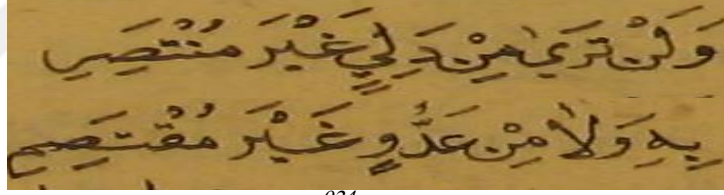 وَلَنْ تَرَىٰ مِنْ وَلِيٍّ غَيْرَ مُنْتَصِرِ
بِهِ وَلَا مِنْ عَدُوٍّ غَيْرَ مُنْقَصِمِ